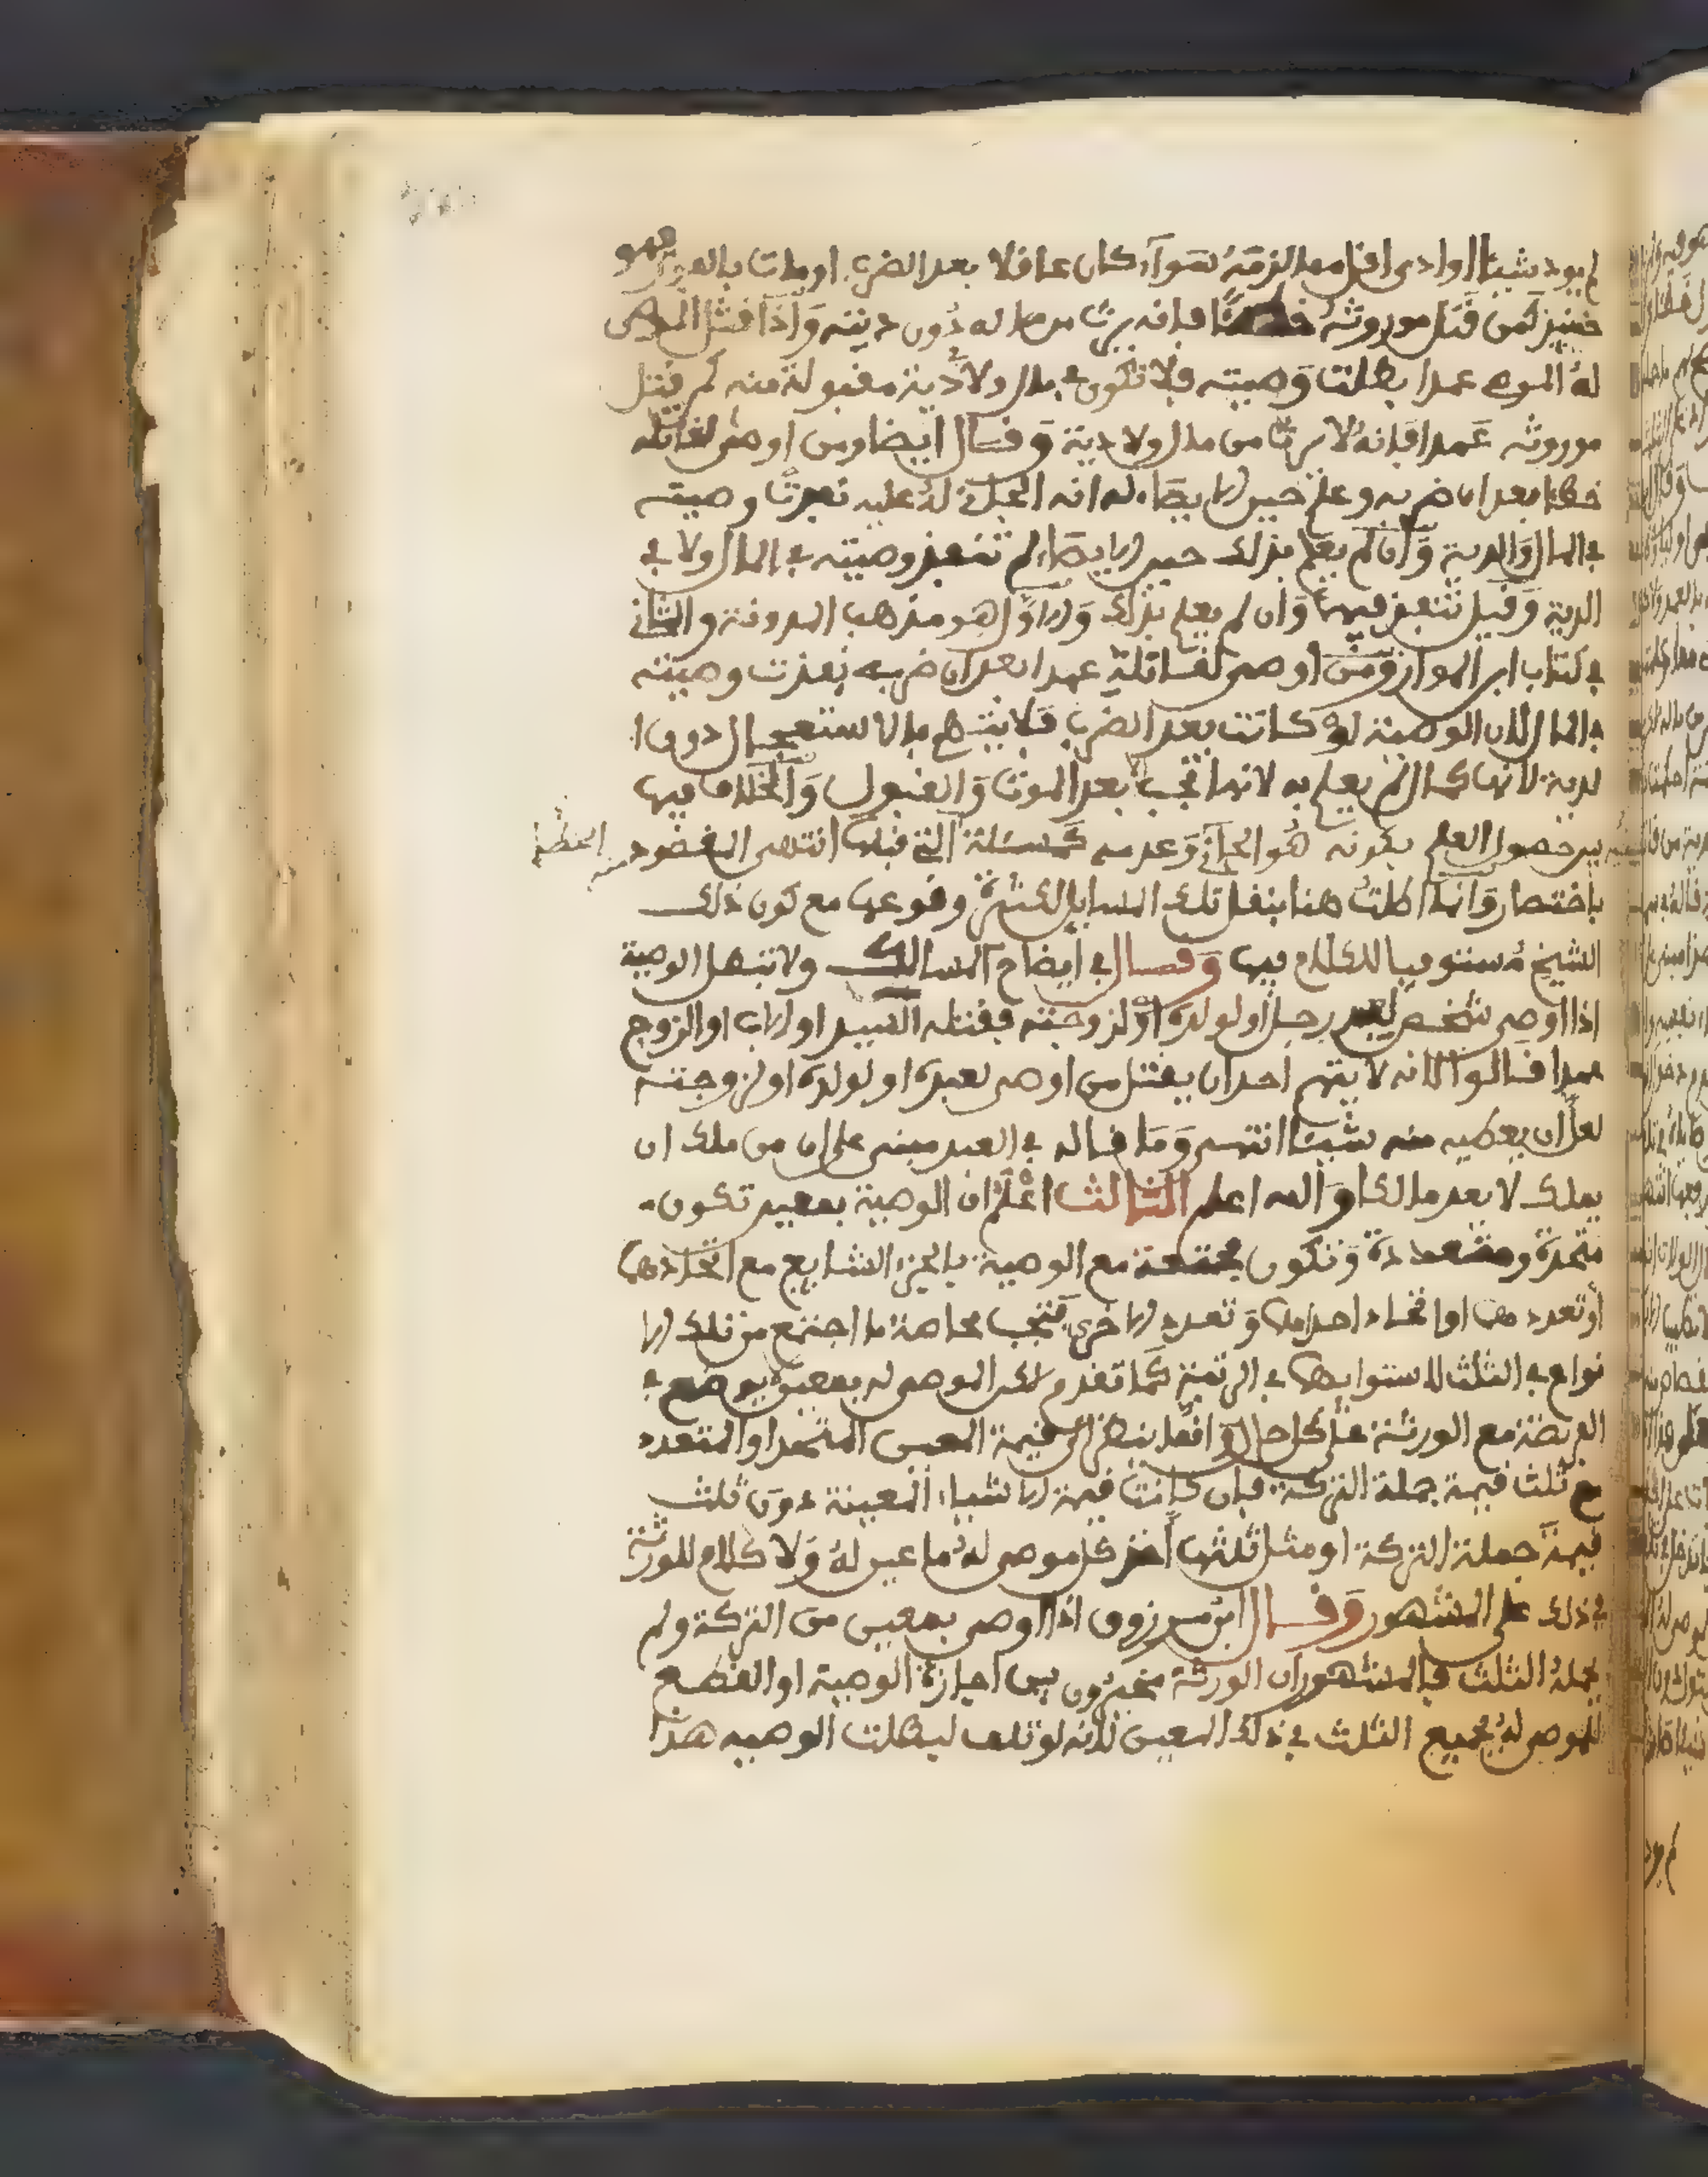 لم يود شيئا او ادى اقل مما لزمه سوآء كان عاقلا بعد الضرب او مات بالفور فهو
حينئذ كمن قتل موروثه خطئا فإنه يرث من ماله دون ديته وَإذا قتل الموصى
لهُ الموصي عمدا بطلت وَصيته فلا تكون في مال ولا دية مقبولة منه كمن قتل
موروثه عَمدا فإنهُ لا يرث من مال ولا دية وَقال ايضا ومن اوصى لقاتله
خطئا بعد ان ضربه وعلم حين الايصاء له انه الجاني لهُ عليه نفذت وصيته
في المال وَالدية وَان لم يعلم بذلك حين الايصاء لم تنفذ وصيته في المال ولا في
الدية وَقيل تنفذ فيهما وَان لم يعلم بذلك وَالاول هو مذهب المدونة والثاني
في كتاب ابن المواز وَمن اوصى لقاتله عمدا بعد ان ضربه نفذت وصيته
في المال لان الوصية له كانت بعد الضرب فلا يتهم بالاستعجال دون ا
لدية لانها كمال لم يعلم به لانها تجب بعد الموت وَالقبول وَالخلاف فيها
بين حصول العلم بكونه هُو الجاني وَعدمه كمسئلة التي قبلها انتهى المقصود منه
باختصار وَانما اطلت هنا بنقل تلك المسايل لكثرة وقوعها مع كون ذلك
الشيخ مُستوفيا للكلام فيها وَقال في ايضاح المسالك ولا تبطل الوصية
اذا اوصى شخص لعبد رجل او لولده اوْ لزوجته فقتله السيد او الاب او الزوج
عمدا قالوا لانه لا يتهم احد ان يقتل من اوصى لعبده او لولده او لزوجته
لعل ان يعطيه منه شيئا انتهى وَمَا قاله في العبد مبني على ان من ملك ان
يملك لا يعد مالكا وَالله اعلم الثالث اعْلم ان الوصية بمعين تكون
متحدة ومتعددة وَتكون مجتمعة مع الوصية بالجزء الشايع مع اتحادهما
أو تعددهما او اتحاد احداهما وَتعدد الاخرى فتجب محاصة ما اجتمع من تلك الا
نواع في الثلث لاستوايها في الرتبة كمَا تقدم لكن الموصى له بمعين يوضع في
الفريضة مع الورثة على كل حال وَانما ينظر الى قيمة المعين المتحد او المتعدد
مع ثلث قيمة جملة التركة فإن كانت قيمة الاشياء المعينة دون ثلث
قيمة جملة التركة او مثل ثلثها أخذ كل موصى لهُ ما عين لهُ وَلا كلام للورثة
في ذلك على المشهور وَقال ابن مرزوق اذا اوصى بمعين من التركة ولم
يحمله الثلث فالمشهور ان الورثة مخيرون بين اجازة الوصية او القطع
للموصى لهُ بجميع الثلث في ذلك المعين لانه لو تلف لبطلت الوصيه هذا